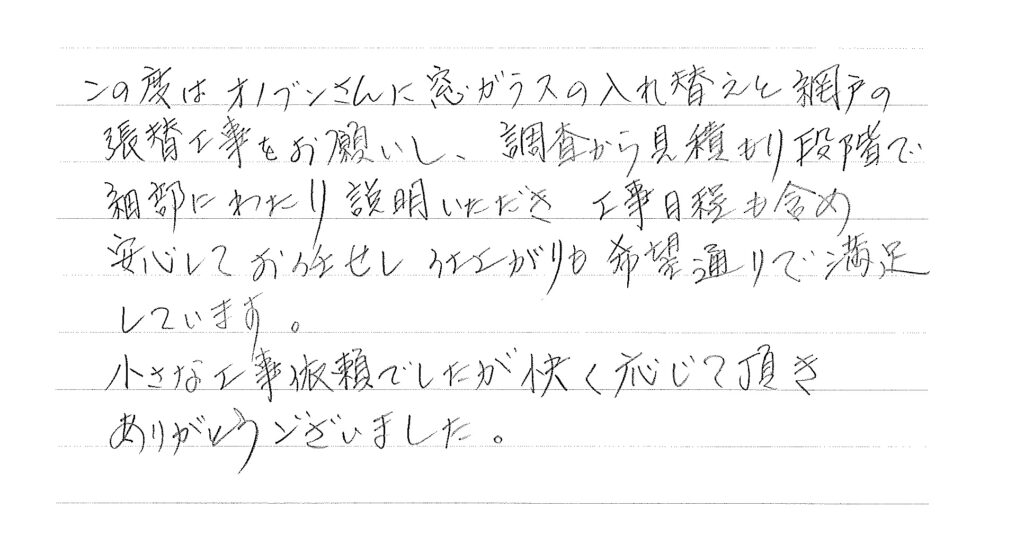 この度はオノブンさんに窓ガラスの入れ替えと網戸の
張替工事をお願いし、調査から見積もり段階で
細部にわたり説明いただき 工事日程も含め
安心してお任せし 仕上がりも希望通りで満足
しています。
小さな工事依頼でしたが快く応じて頂き
ありがとうございました。